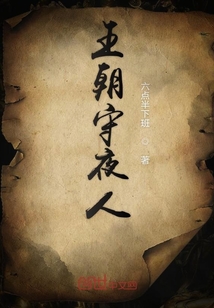 王朝守夜人
六点半下班 ◇ 著